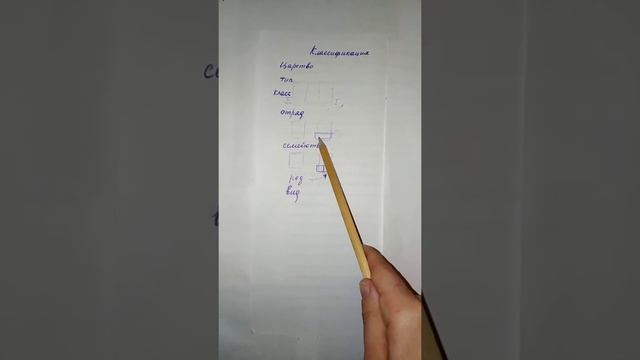 Классификация
Царство
тип
класс
отряд
семейство
род
вид